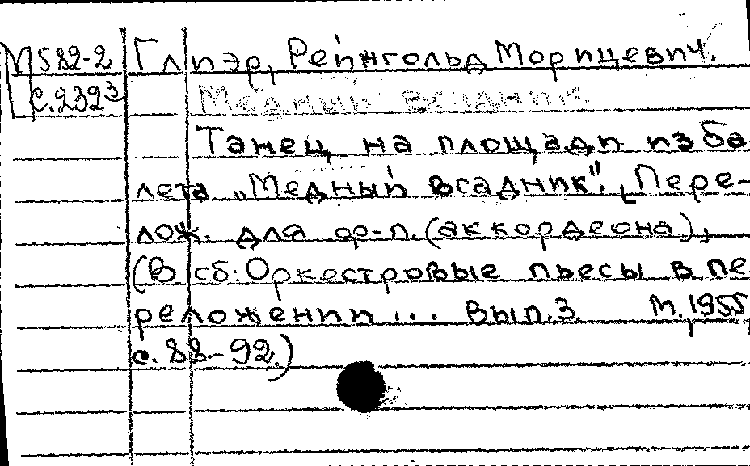 М582-2 Глиэр, Рейнгольд Морицевич.
с.2323 Медный всадник
Танец на площади из ба-
лета „Медный всадник". [Пере-
лож. для ф-п. (аккордеона),
(В сб. Оркестровые пьесы в пе
реложении... вып.3 М.1955
с. 88-92.)